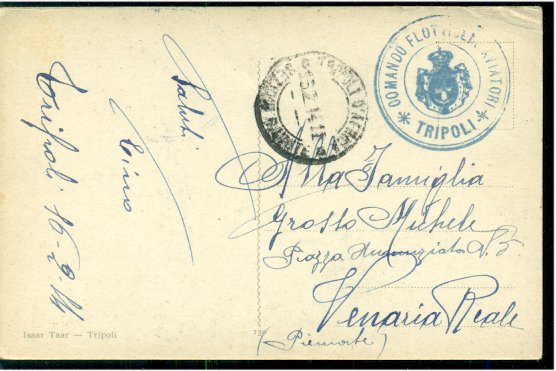 Tripoli 16-2-14
Saluti
Gino
COMANDO FLOTTIGLIA AVIATORI
* TRIPOLI *
TRIPOLI D'AFRICA
Alla Famiglia
Grosso Michele
Piazza Annunziata N. 5
Venaria Reale
(Piemonte)
Issar Taar — Tripoli